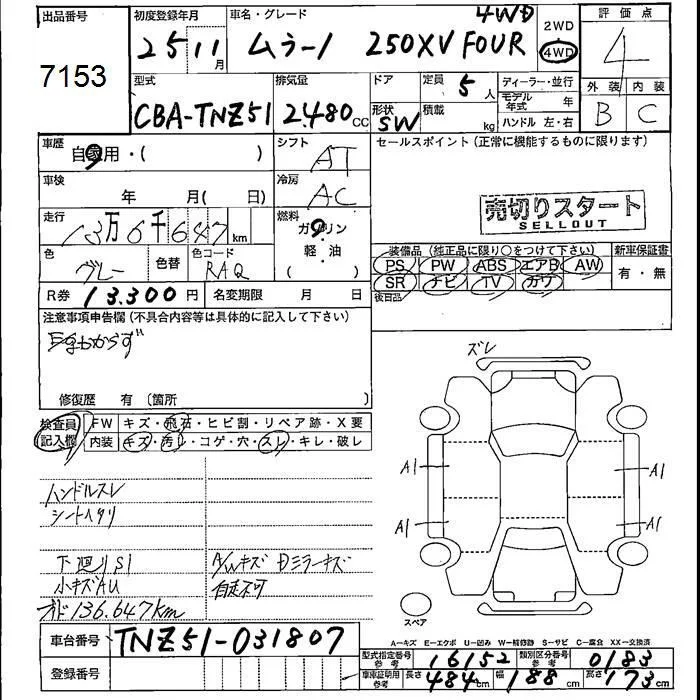 出品番号 初度登録年月 車名・グレード 4WD 2WD 評価点
7153 25 11月 ムラーノ 250XV FOUR 4WD 4
型式 排気量 ドア 定員 5人 ディーラー・並行 外装 内装
CBA-TNZ51 2,480cc 形状 SW 積載 kg モデル年式 年 ハンドル 左・右 B C
車歴 自家用・( ) シフト AT セールスポイント(正常に機能するものに限ります)
車検 年 月( 日) 冷房 AC
売切りスタート
SELLOUT
走行 13万6千647km 燃料 ガソリン
軽・油
( )
色 グレー 色替 色コード RAQ
装備品(純正品に限り○をつけて下さい) 新車保証書
PS PW ABS エアB AW 有・無
SR ナビ TV カワ
後日品
R券 13.300円 名変期限 月 日
注意事項申告欄(不具合内容等は具体的に記入して下さい)
かからず
修復歴 有(箇所 )
ズレ
検査員記入欄 FW キズ・飛石・ヒビ割・リペア跡・X要
内装 キズ・汚レ・コゲ・穴・スレ・キレ・破レ
A1 A1
A1 A1
ハンドルスレ
シートヘタリ
下廻りS1 A/Wキズ Dミラーキズ
小キズAU 自走不可
オド136.647km
スペア
A−キズ E−エクボ U−凹み W−補修跡 S−サビ C−腐食 XX−交換済
車台番号 TNZ51-031807
型式指定番号 参考 16152 類別区分番号 参考 0183
登録番号 車庫証明用 参考 長さ 484cm 幅 188cm 高さ 173cm